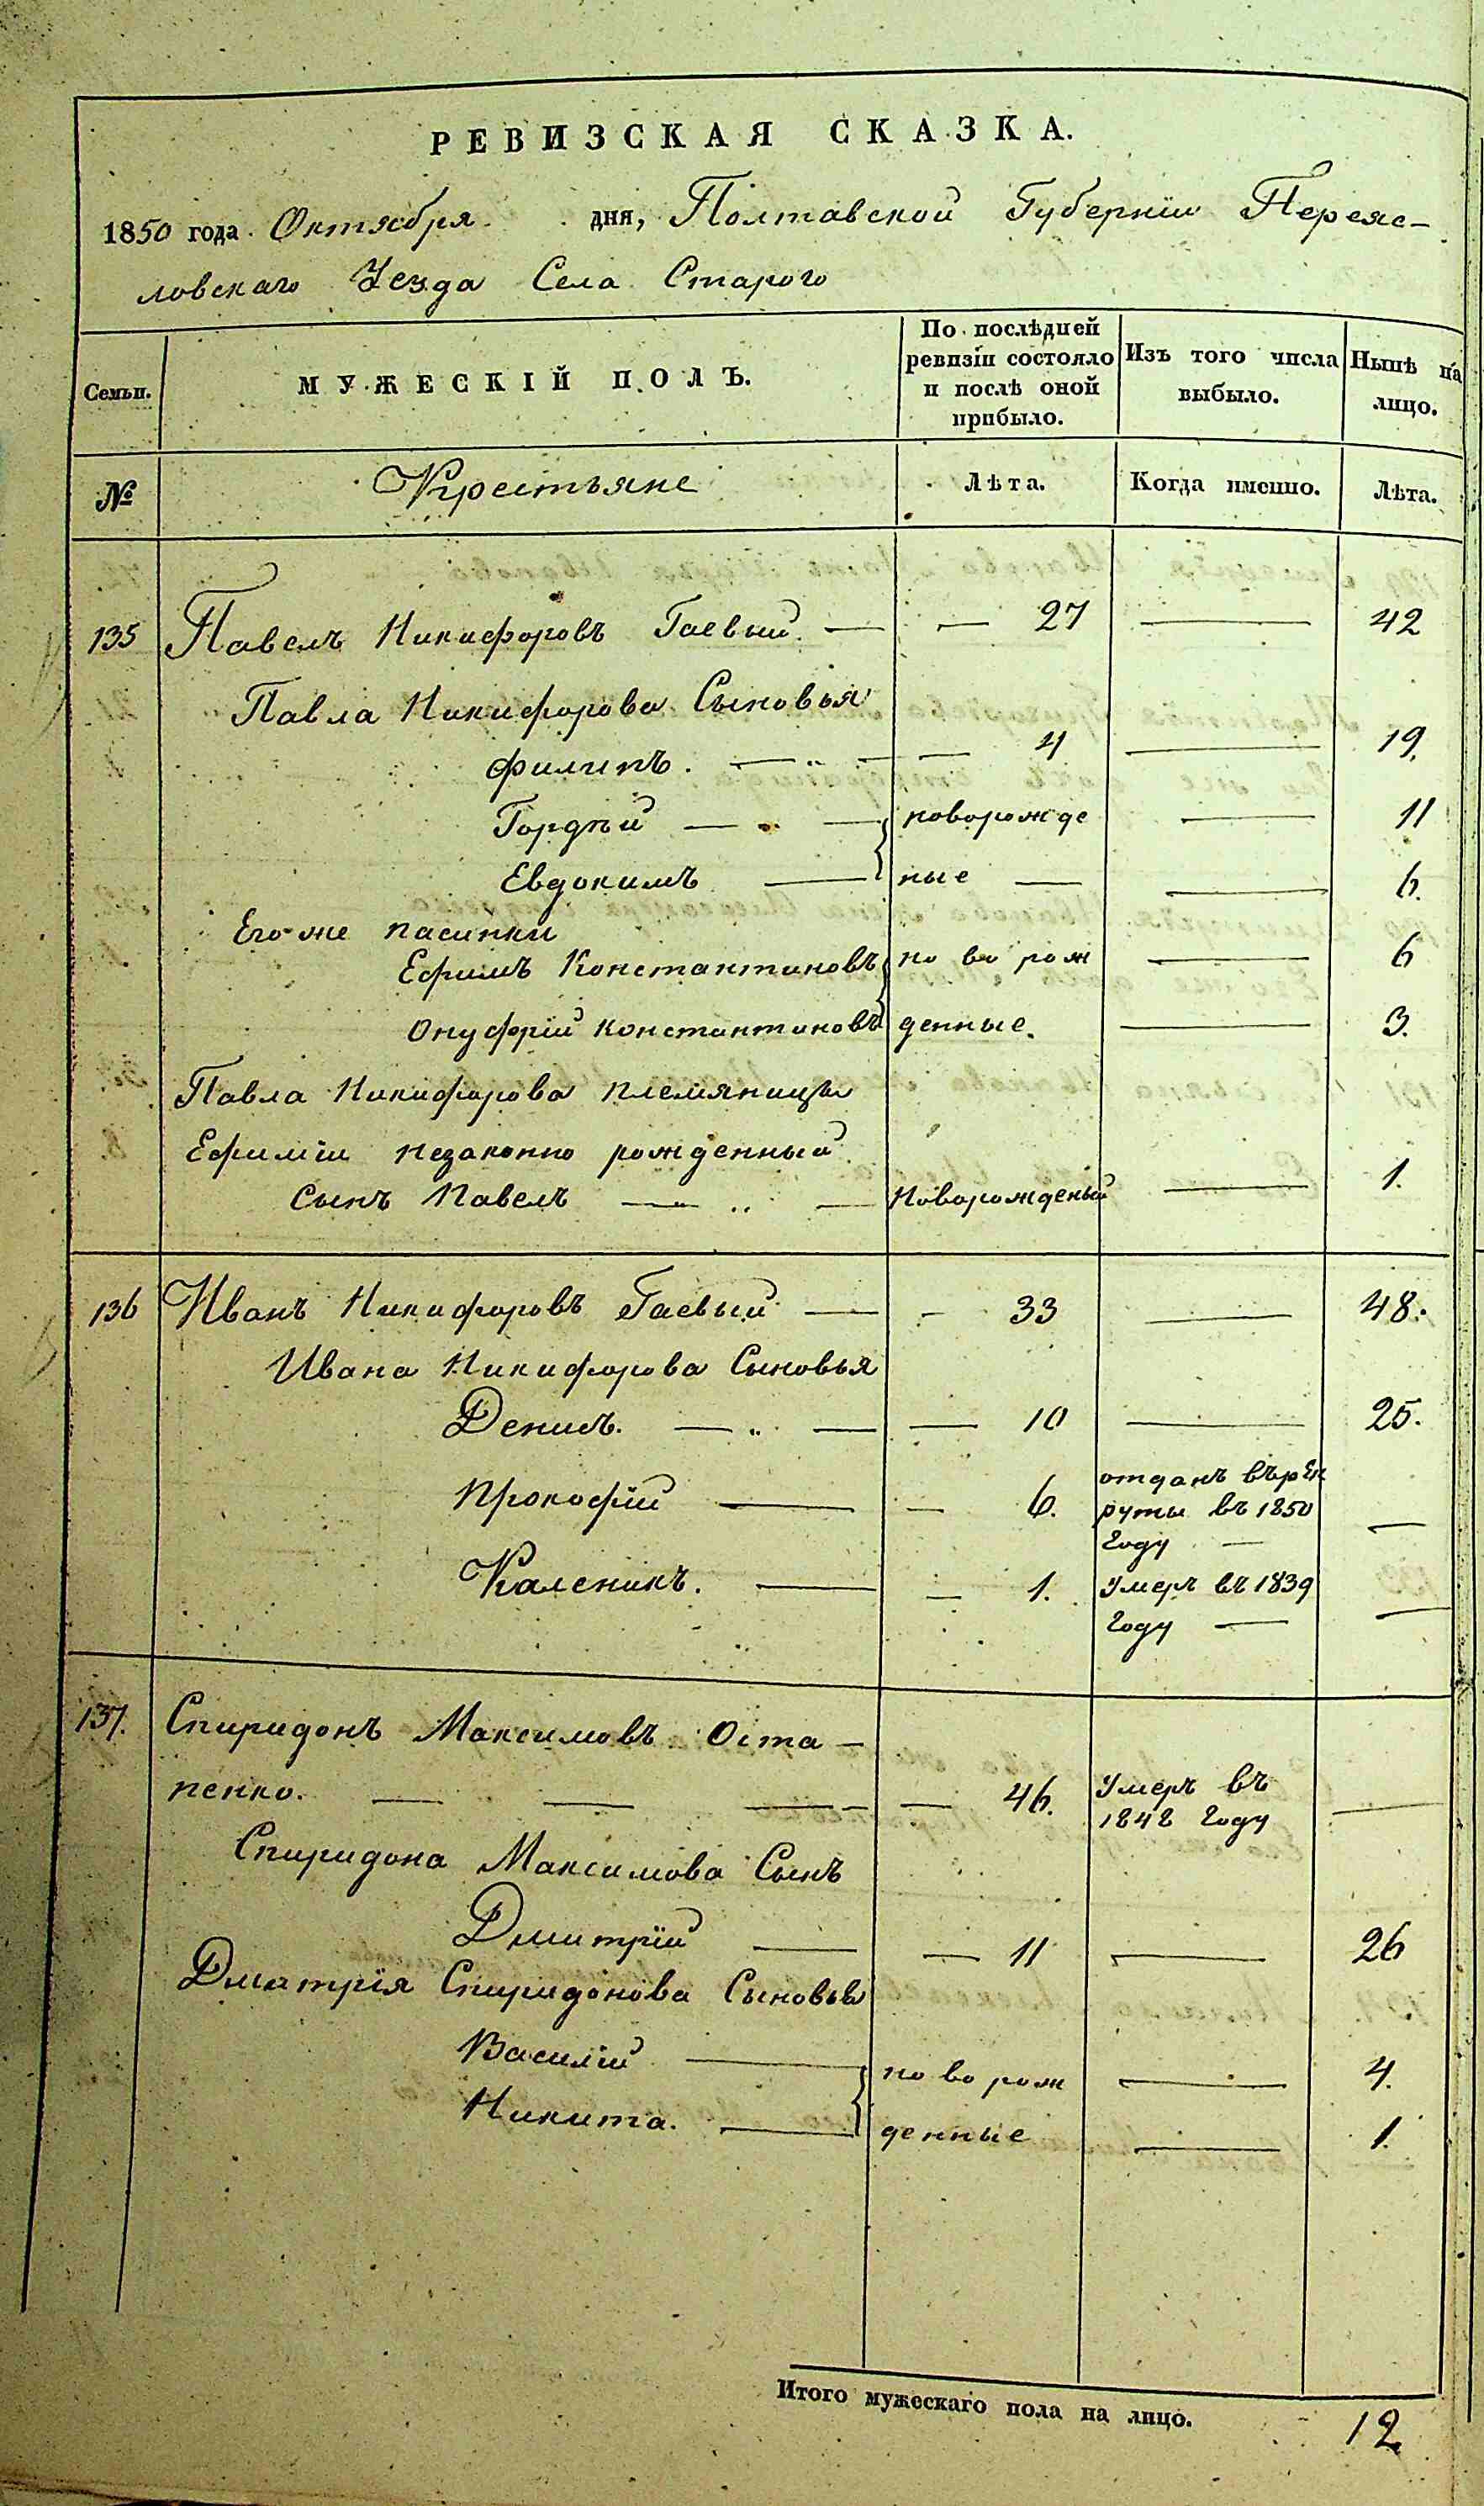 РЕВИЗСКАЯ СКАЗКА.
1850 года Октября дня, Полтавской Губерніи Переяс-
ловскаго Уезда Села Старого
Семьи. МУЖЕСКІЙ ПОЛЪ. По послѣдней ревизіи состояло и послѣ оной прибыло. Изъ того числа выбыло. Нынѣ на лицо.
№ Крестьяне Лѣта. Когда именно. Лѣта.
135 Павелъ Никифоровъ Гаевый — — 27 — 42
Павла Никифорова Сыновья
Филипъ. — „ — — 4 — 19.
Гордѣй — — новорожде — 11
Евдокимъ — ные — — 6.
Его-же пасинки
Ефимъ Константиновъ но во рож — 6
Онуфрій Константиновъ денные. — 3.
Павла Никифорова племяницы
Ефиміи незаконно рожденный
Сынъ Павелъ — „ — Новорожденый — 1.
136 Иванъ Никифоровъ Гаевый — — 33 — 48.
Ивана Никифорова Сыновья
Денисъ. — „ — — 10 — 25.
Прокофій — — 6. отданъ въ рек
руты въ 1850
году — —
Каленикъ. — — 1. Умеръ въ 1839
году — —
137. Спиридонъ Максимовъ Оста-
пенко. — — — — 46. Умеръ въ
1848 году —
Спиридона Максимова Сынъ
Дмитрій — — 11 — 26
Дматрія Спиридонова Сыновья
Василій — но во рож — 4.
Никита. — денные — 1.
Итого мужескаго пола на лицо. 12